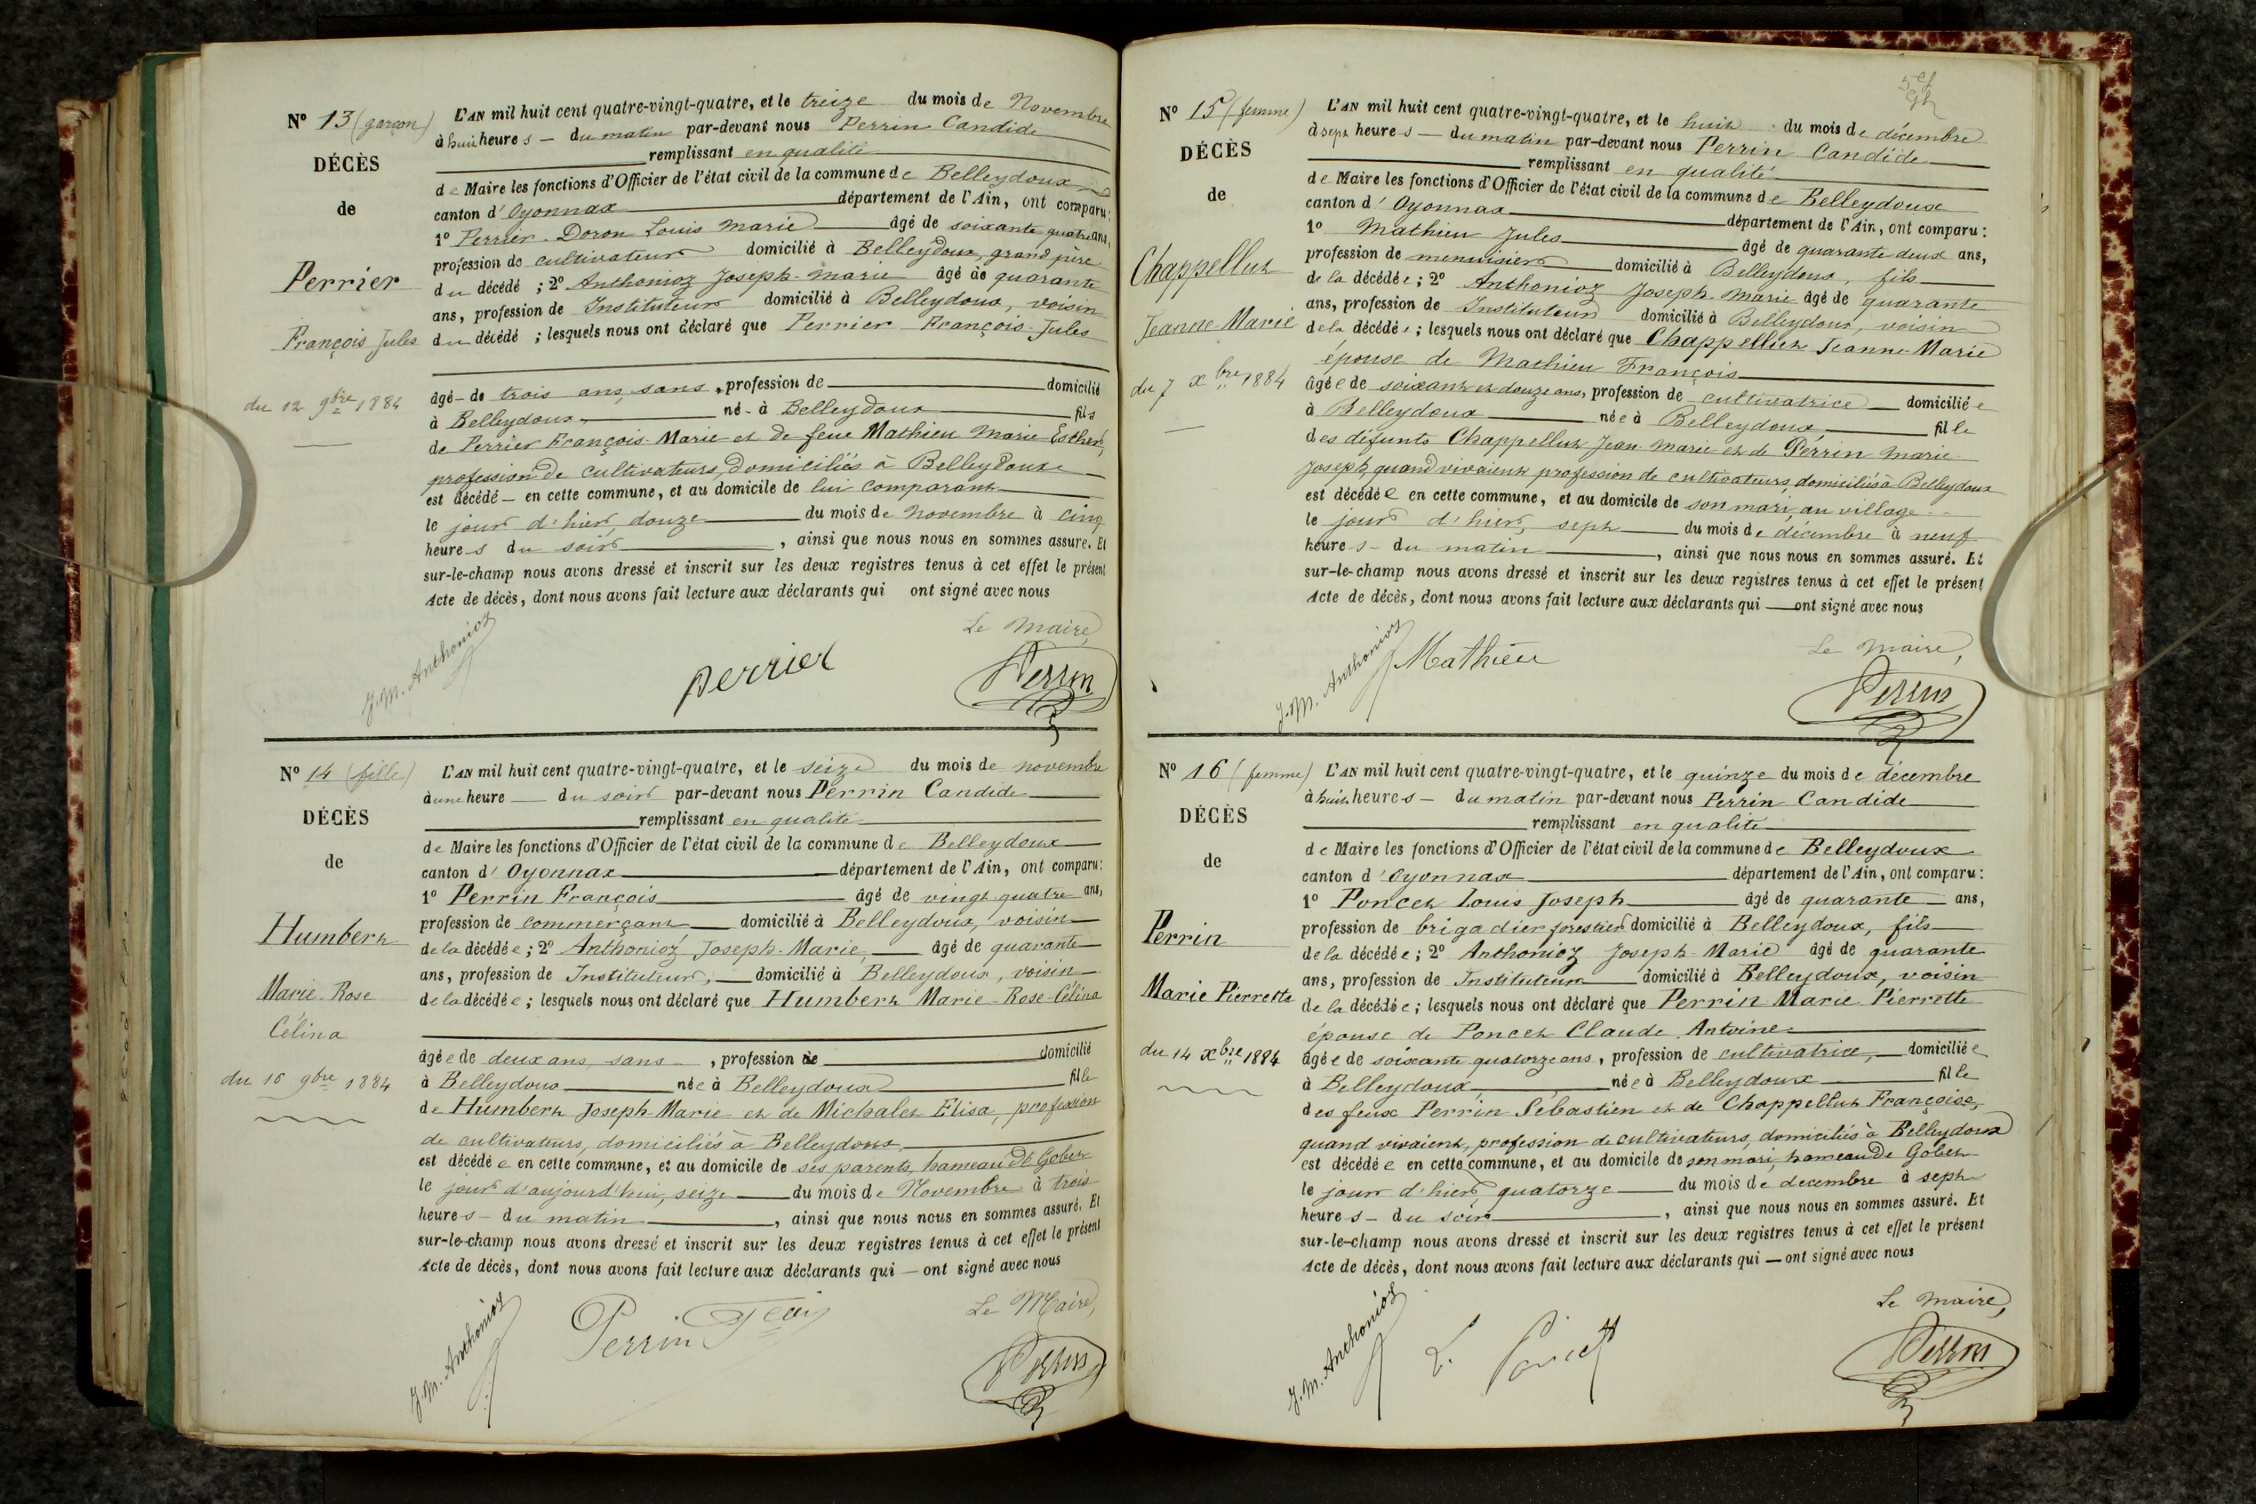 N° 13 (garçon)
DÉCÈS
de
Perrier
François Jules
du 12 9bre 1884
L'AN mil huit cent quatre-vingt-quatre, et le treize du mois de Novembre
à huit heures – du matin par-devant nous Perrin Candide
remplissant en qualité
de Maire les fonctions d'Officier de l'état civil de la commune de Belleydoux
canton d'Oyonnax département de l'Ain, ont comparu:
1° Perrier-Doron Louis Marie âgé de soixante quatre ans,
profession de cultivateur domicilié à Belleydoux, grand père
du décédé ; 2° Anthonioz Joseph-Marie âgé de quarante
ans, profession de Instituteur domicilié à Belleydoux, voisin
du décédé ; lesquels nous ont déclaré que Perrier François-Jules
âgé- de trois ans, sans, profession de domicilié
à Belleydoux né- à Belleydoux fils
de Perrier François-Marie et de feue Mathieu Marie-Esther,
profession de cultivateurs, domiciliés à Belleydoux
est décédé – en cette commune, et au domicile de lui comparant
le jour d'hier, douze du mois de Novembre à cinq
heures du soir, ainsi que nous nous en sommes assuré. Et
sur-le-champ nous avons dressé et inscrit sur les deux registres tenus à cet effet le présent
Acte de décès, dont nous avons fait lecture aux déclarants qui ont signé avec nous
Le Maire,
J.M. Anthonioz
perrier
Perrin
N° 14 (fille)
DÉCÈS
de
Humbert
Marie-Rose
Célina
du 16 9bre 1884
L'AN mil huit cent quatre-vingt-quatre, et le seize du mois de novembre
à une heure – du soir par-devant nous Perrin Candide
remplissant en qualité
de Maire les fonctions d'Officier de l'état civil de la commune de Belleydoux
canton d'Oyonnax département de l'Ain, ont comparu:
1° Perrin François âgé de vingt-quatre ans,
profession de commerçant domicilié à Belleydoux, voisin
de la décédée ; 2° Anthonioz Joseph-Marie, âgé de quarante
ans, profession de Instituteur, domicilié à Belleydoux, voisin
de la décédée ; lesquels nous ont déclaré que Humbert Marie-Rose-Célina
âgée de deux ans, sans, profession de domicilié
à Belleydoux née à Belleydoux fille
de Humbert Joseph-Marie et de Michalet Elisa, profession
de cultivateurs, domiciliés à Belleydoux
est décédée en cette commune, et au domicile de ses parents, hameau de Gobet
le jour d'aujourd'hui, seize du mois de Novembre à trois
heures – du matin, ainsi que nous nous en sommes assuré. Et
sur-le-champ nous avons dressé et inscrit sur les deux registres tenus à cet effet le présent
Acte de décès, dont nous avons fait lecture aux déclarants qui – ont signé avec nous
Le Maire,
J.M. Anthonioz
Perrin
Perrin
N° 15 (femme)
DÉCÈS
de
Chappelluz
Jeanne Marie
du 7 xbre 1884
L'AN mil huit cent quatre-vingt-quatre, et le huit du mois de décembre
à sept heures – du matin par-devant nous Perrin Candide
remplissant en qualité
de Maire les fonctions d'Officier de l'état civil de la commune de Belleydoux
canton d'Oyonnax département de l'Ain, ont comparu:
1° Mathieu Jules âgé de quarante deux ans,
profession de menuisier domicilié à Belleydoux, fils
de la décédée ; 2° Anthonioz Joseph-Marie âgé de quarante
ans, profession de Instituteur domicilié à Belleydoux, voisin
de la décédée ; lesquels nous ont déclaré que Chappelluz Jeanne-Marie
épouse de Mathieu François
âgée de soixante et douze ans, profession de cultivatrice domiciliée
à Belleydoux née à Belleydoux, fille
des défunts Chappelluz Jean-Marie et de Perrin Marie
Joseph, quand vivaient profession de cultivateurs, domiciliés à Belleydoux
est décédée en cette commune, et au domicile de son mari, au village
le jour d'hier, sept du mois de décembre à neuf
heures – du matin, ainsi que nous nous en sommes assuré. Et
sur-le-champ nous avons dressé et inscrit sur les deux registres tenus à cet effet le présent
Acte de décès, dont nous avons fait lecture aux déclarants qui – ont signé avec nous
Le Maire,
J.M. Anthonioz
Mathieu
Perrin
N° 16 (femme)
DÉCÈS
de
Perrin
Marie Pierrette
du 14 xbre 1884
L'AN mil huit cent quatre-vingt-quatre, et le quinze du mois de décembre
à huit heures – du matin par-devant nous Perrin Candide
remplissant en qualité
de Maire les fonctions d'Officier de l'état civil de la commune de Belleydoux
canton d'Oyonnax département de l'Ain, ont comparu:
1° Poncet Louis Joseph âgé de quarante ans,
profession de brigadier forestier domicilié à Belleydoux, fils
de la décédée ; 2° Anthonioz Joseph-Marie âgé de quarante
ans, profession de Instituteur domicilié à Belleydoux, voisin
de la décédée ; lesquels nous ont déclaré que Perrin Marie Pierrette
épouse de Poncet Claude Antoine
âgée de soixante quatorze ans, profession de cultivatrice, domiciliée
à Belleydoux, née à Belleydoux fille
des feux Perrin Sébastien et de Chappelluz Françoise,
quand vivaient, profession de cultivateurs, domiciliés à Belleydoux
est décédée en cette commune, et au domicile de son mari, hameau de Gobet
le jour d'hier, quatorze du mois de décembre à sept
heures – du soir, ainsi que nous nous en sommes assuré. Et
sur-le-champ nous avons dressé et inscrit sur les deux registres tenus à cet effet le présent
Acte de décès, dont nous avons fait lecture aux déclarants qui – ont signé avec nous
Le Maire,
J.M. Anthonioz
L. Poncet
Perrin